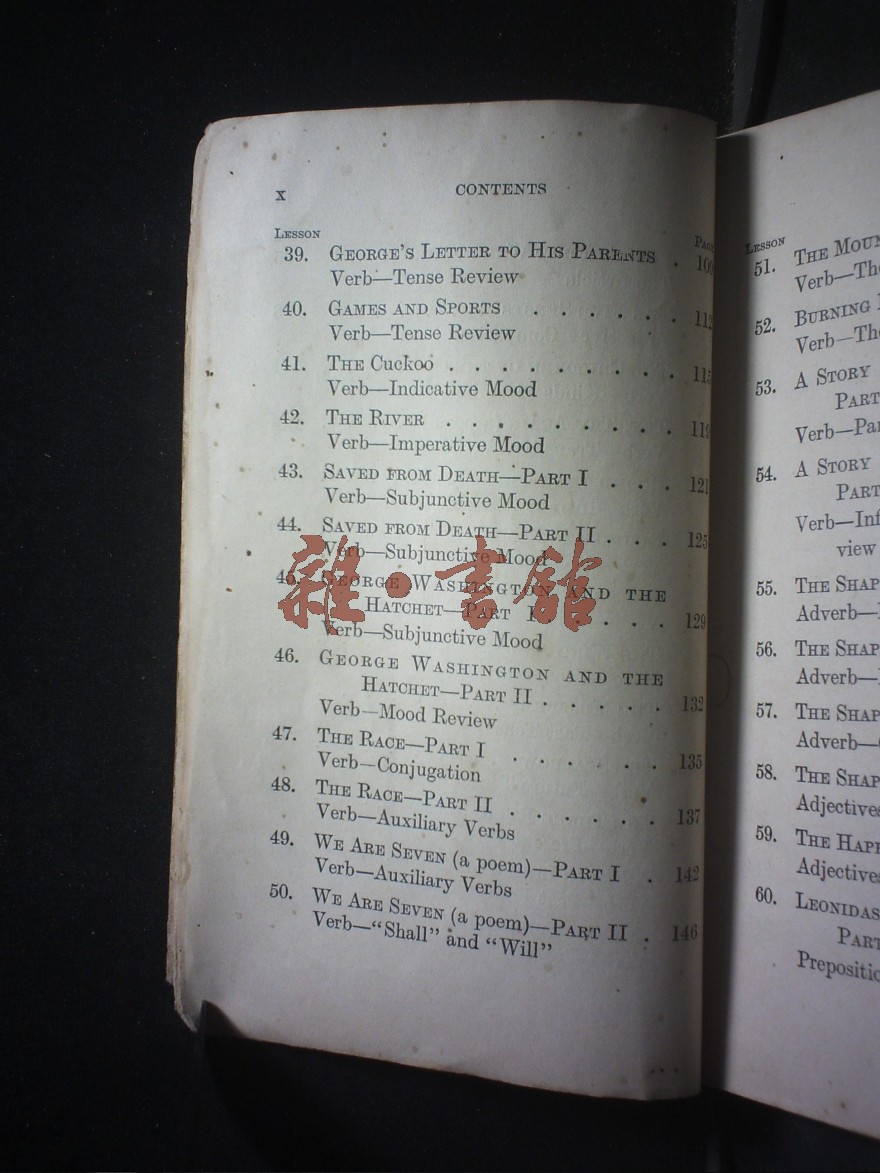 x
CONTENTS
LESSON
PAGE
39. GEORGE'S LETTER TO HIS PARENTS . 109
Verb—Tense Review
40. GAMES AND SPORTS . . . . . . 112
Verb—Tense Review
41. THE CUCKOO . . . . . . . . . 115
Verb—Indicative Mood
42. THE RIVER . . . . . . . . .
Verb—Imperative Mood
43. SAVED FROM DEATH—PART I . . . 121
Verb—Subjunctive Mood
44. SAVED FROM DEATH—PART II . . . 125
Verb—Subjunctive Mood
45. GEORGE WASHINGTON AND THE
HATCHET—PART I . . . . 129
Verb—Subjunctive Mood
雜·書館
46. GEORGE WASHINGTON AND THE
HATCHET—PART II . . . . . 132
Verb—Mood Review
47. THE RACE—PART I . . . . . . 135
Verb—Conjugation
48. THE RACE—PART II . . . . . . 137
Verb—Auxiliary Verbs
49. WE ARE SEVEN (a poem)—PART I . 142
Verb—Auxiliary Verbs
50. WE ARE SEVEN (a poem)—PART II . 146
Verb—"Shall" and "Will"
LESSON
51. THE
Verb—
52. BURNING
Verb—
53. A STORY
PART
Verb—
54. A STORY
PART
Verb—
view
55. THE
Adverb—
56. THE
Adverb—
57. THE
Adverb—
58. THE
Adjectives
59. THE
Adjectives
60. LEONIDAS
PART